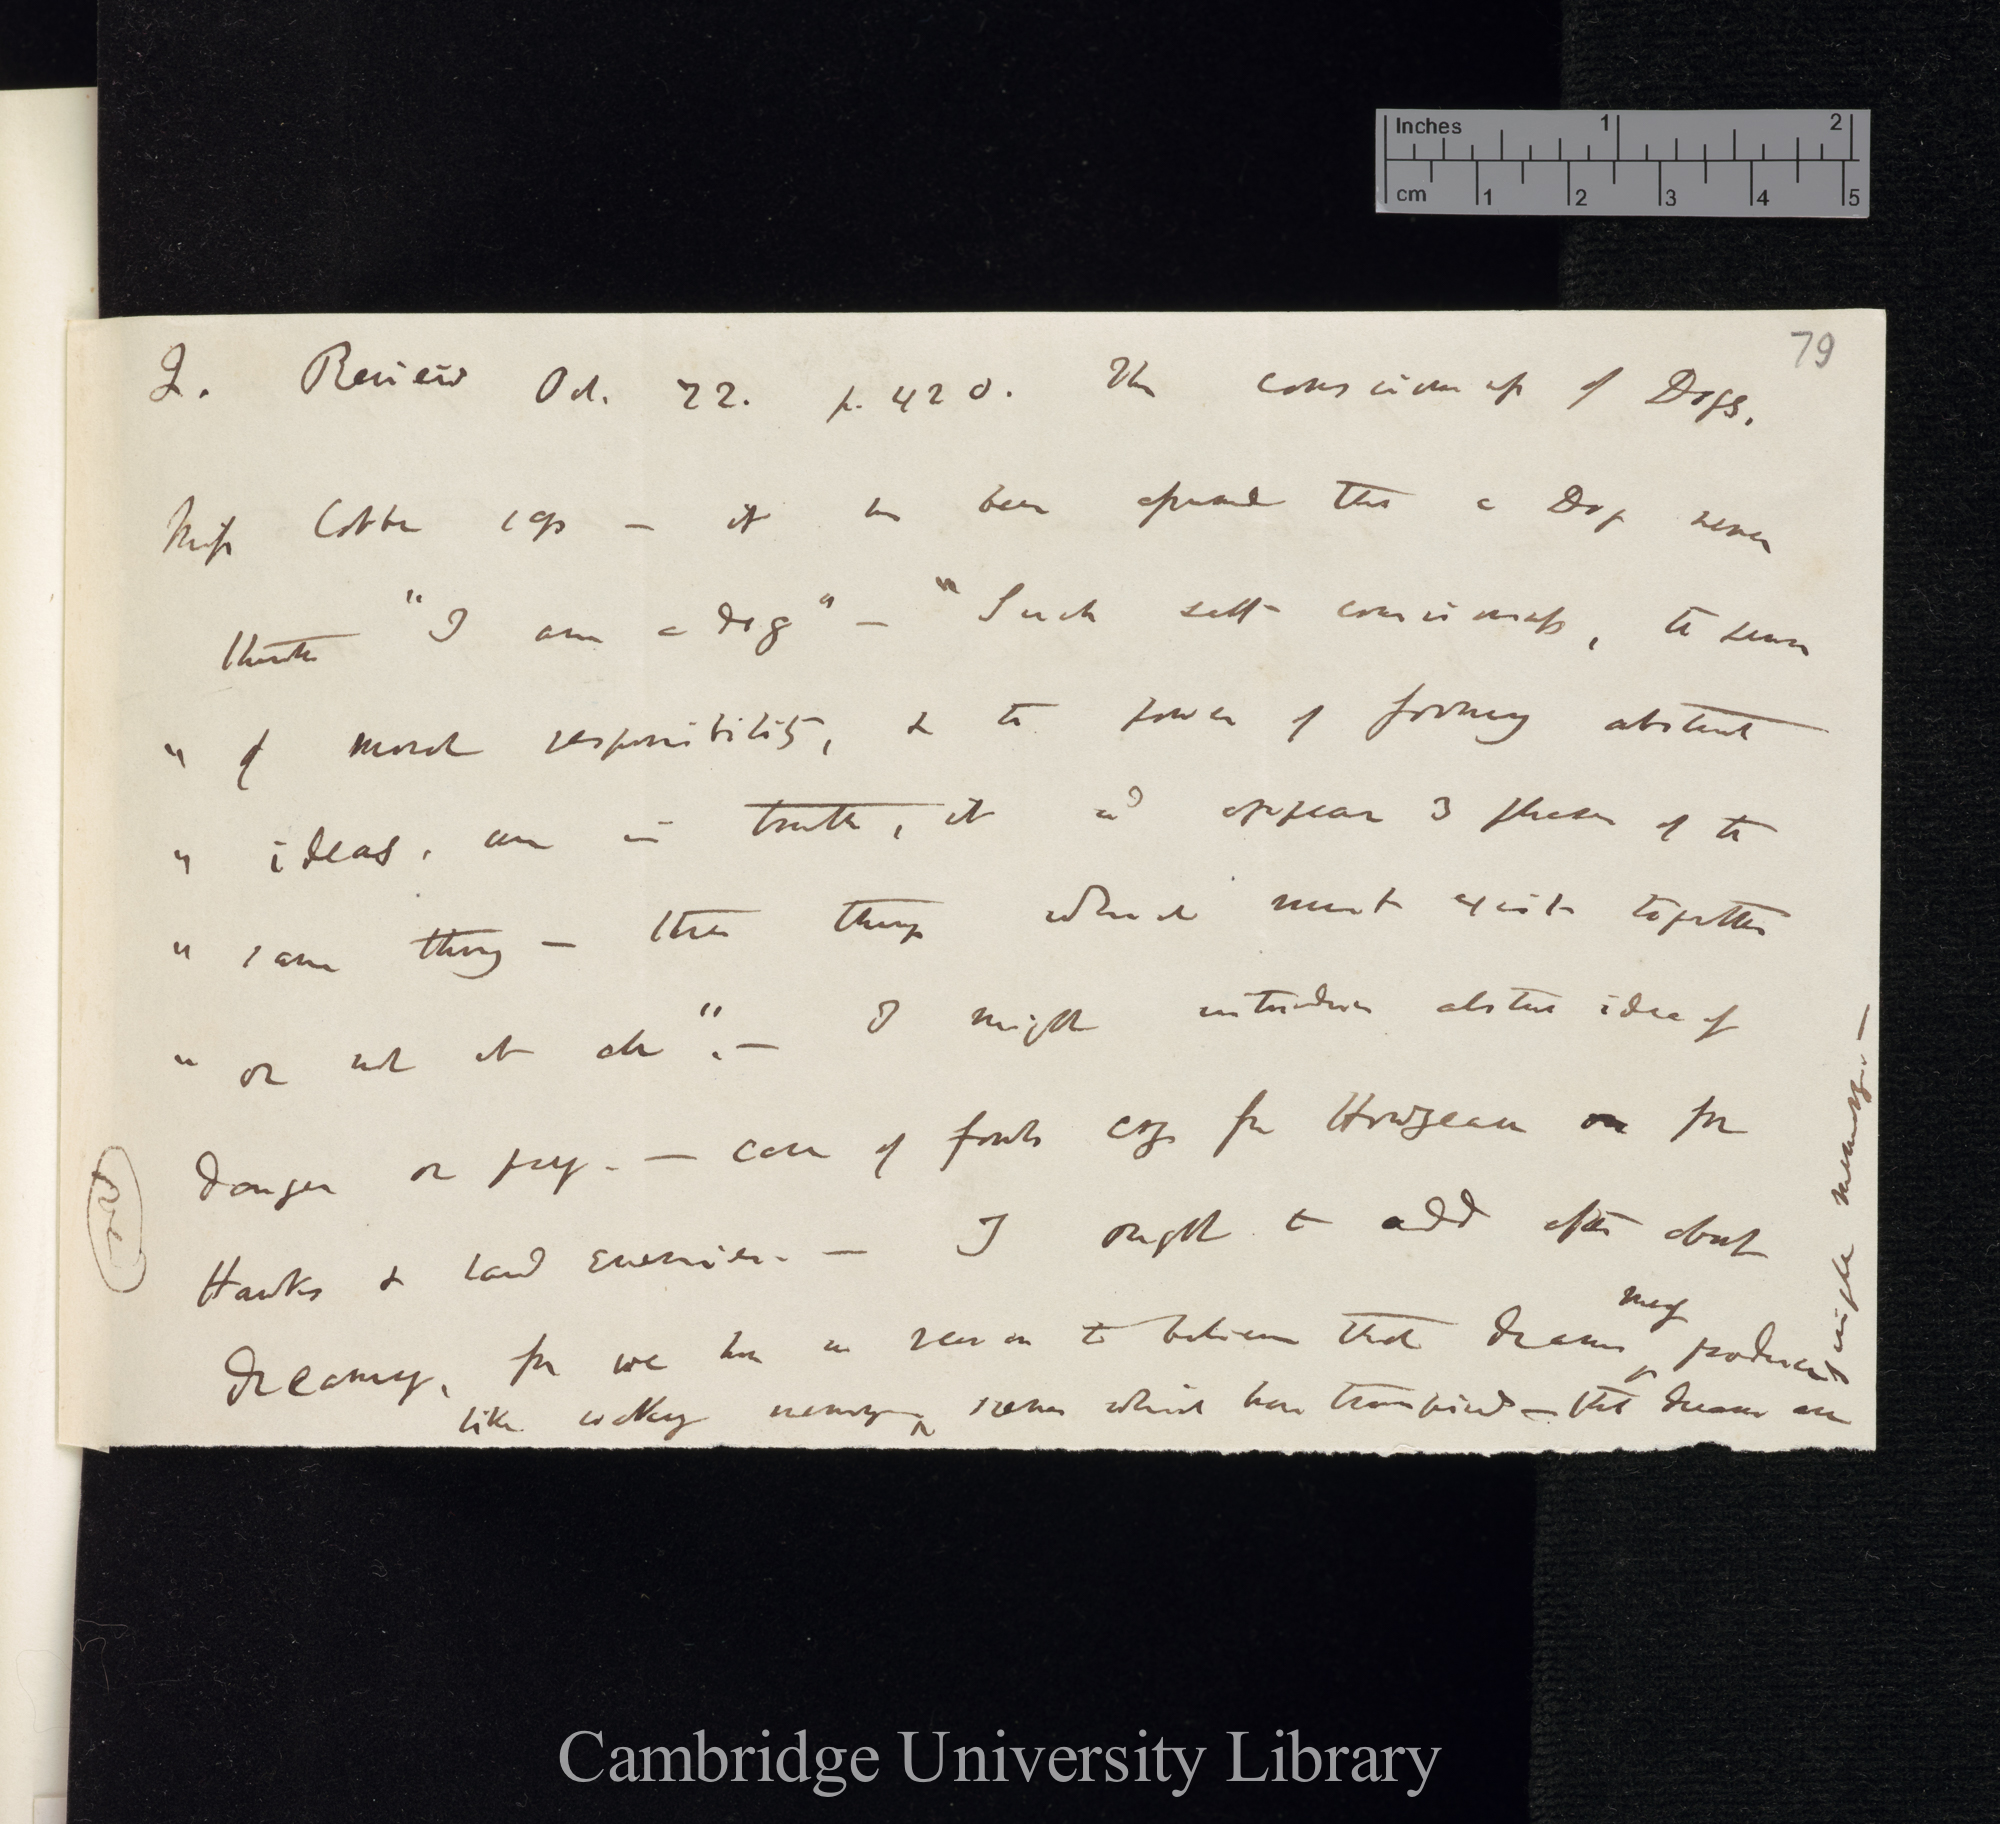 Inches 1 2
cm 1 2 3 4 5
79
Q. Review Oct. 72. p. 420. The consciousness of Dogs.
Miss Cobbe says — it has been assumed that a Dog never
thinks "I am a dog" — "Such self-consciousness, the sense
" of moral responsibility, & the power of forming abstract
" ideas, are in truth, it wd appear 3 phases of the
" same thing — three things which must exist together
" or not at all". — I might introduce abstract idea of
danger or prey. — case of fowls cry for Houzeau on for
Hawks & land enemies. — I ought to add after about
dreaming, for we have no reason to believe that dreams may produced
like waking memory scenes which have transpired — that dreams are
simple memory. —
Cambridge University Library